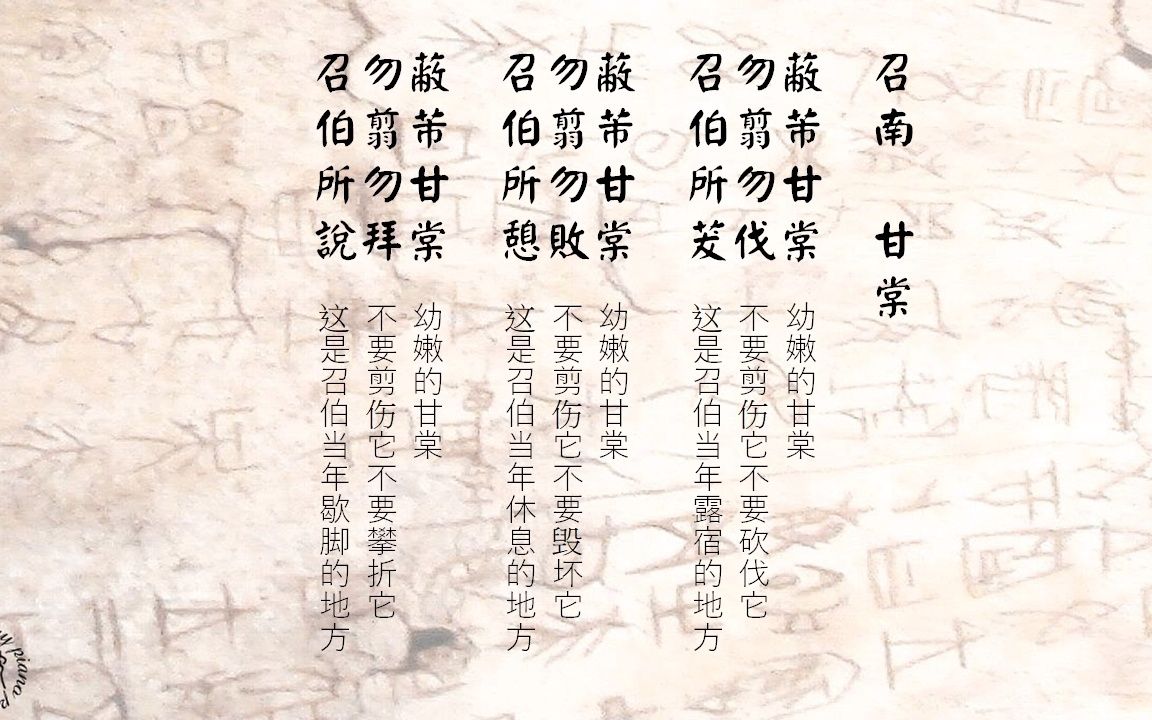 召南 甘棠
蔽芾甘棠
勿翦勿伐
召伯所茇
幼嫩的甘棠
不要剪伤它不要砍伐它
这是召伯当年露宿的地方
蔽芾甘棠
勿翦勿敗
召伯所憩
幼嫩的甘棠
不要剪伤它不要毁坏它
这是召伯当年休息的地方
蔽芾甘棠
勿翦勿拜
召伯所說
幼嫩的甘棠
不要剪伤它不要攀折它
这是召伯当年歇脚的地方
piano